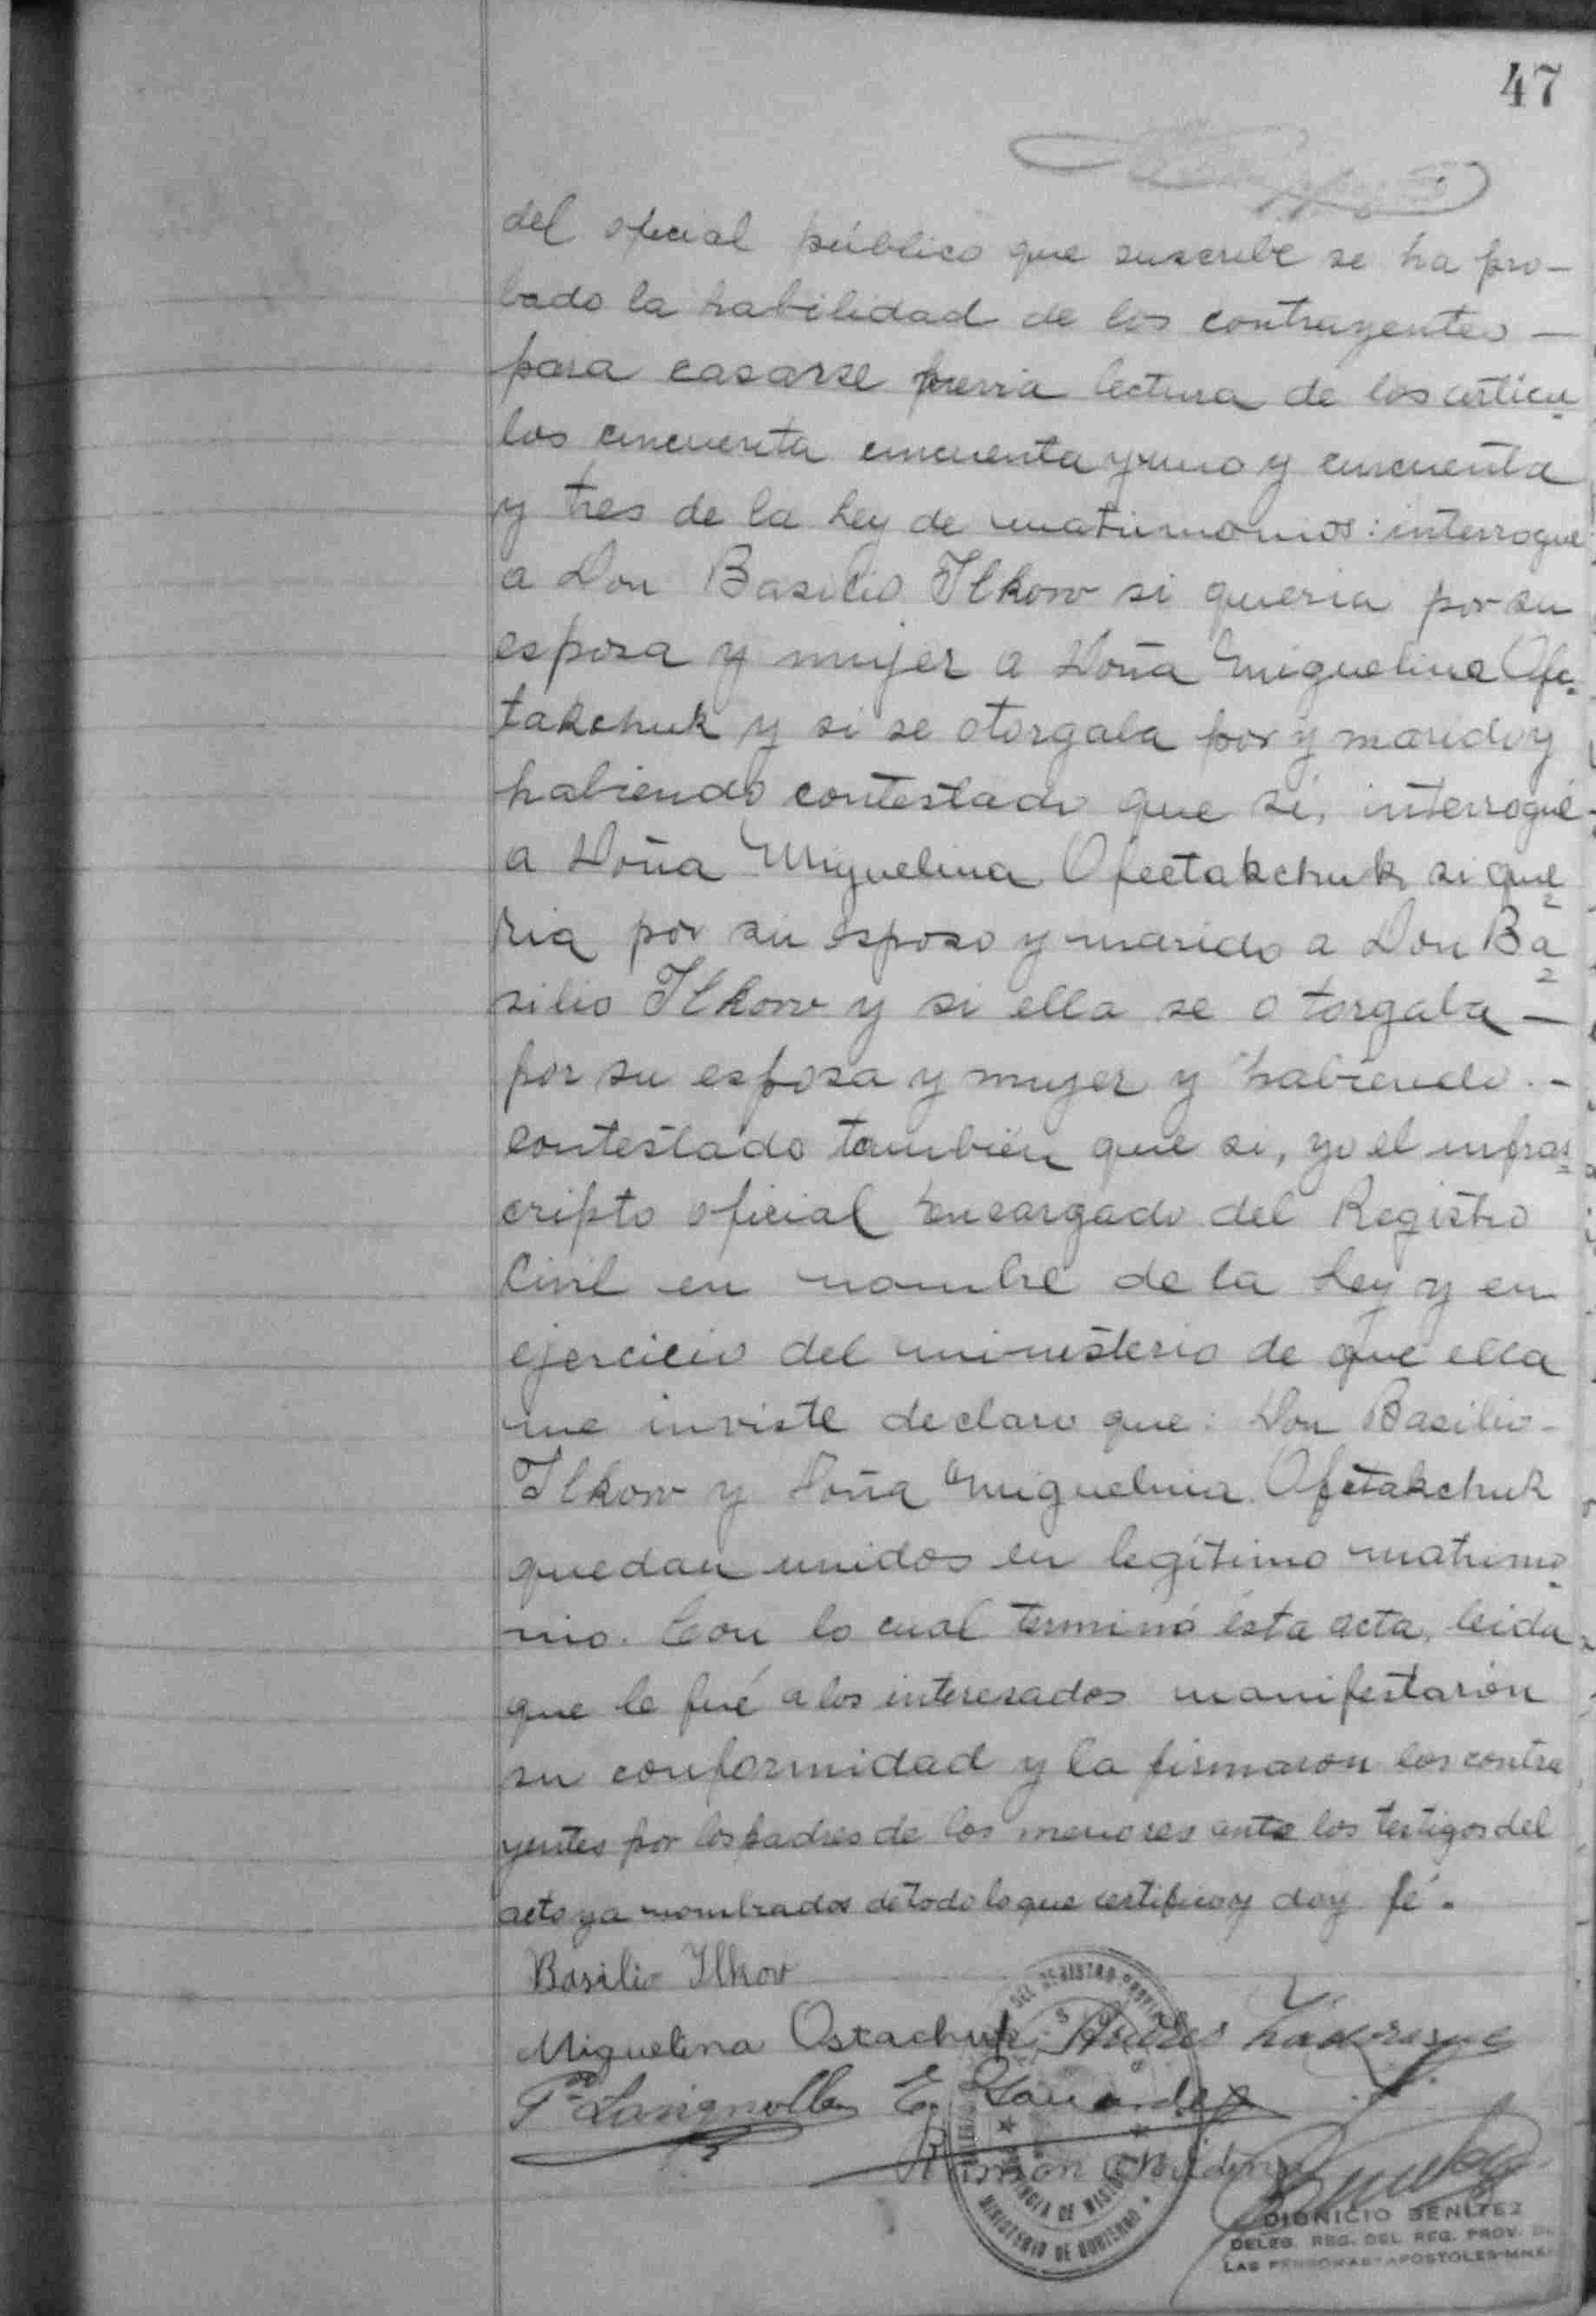 47
del oficial público que suscribe se ha pro-
bado la habilidad de los contrayentes —
para casarse previa lectura de los articu
los cincuenta cincuenta y uno y cincuenta
y tres de la Ley de matrimonios: interrogué
a Don Basilio Ilkow si queria por su
esposa y mujer a Doña Miguelina Ofe-
takchuk y si se otorgaba por y marido y
habiendo contestado que si, interrogué-
a Doña Miguelina Ofeetakchuk si que
ria por su esposo y marido a Don Ba
silio Ilkow y si ella se otorgaba —
por su esposa y mujer y habiendo. -
contestado también que si, yo el infras
cripto oficial encargado del Registro
Civil en nombre de la Ley y en
ejercicio del ministerio de que ella
me inviste declaro que: Don Basilio -
Ilkow y Doña Miguelina Ofetakchuk
quedan unidos en legítimo matrimo
nio. Con lo cual terminó ésta acta, leida
que le fué a los interesados manifestarón
su conformidad y la firmaron los contra
yentes por los padres de los menores ante los testigos del
acto ya nombrados de todo lo que certifico y doy fé.
Basilio Ilkov
Miguelina Ostachuk Andres
E.
Ramón
DEL REGISTRO PROVIN
PROVINCIA DE MISIONES
MINISTERIO DE GOBIERNO
DIONICIO BENITEZ
DELEG. REG. DEL REG. PROV. DE
LAS PERSONAS - APOSTOLES-MNES